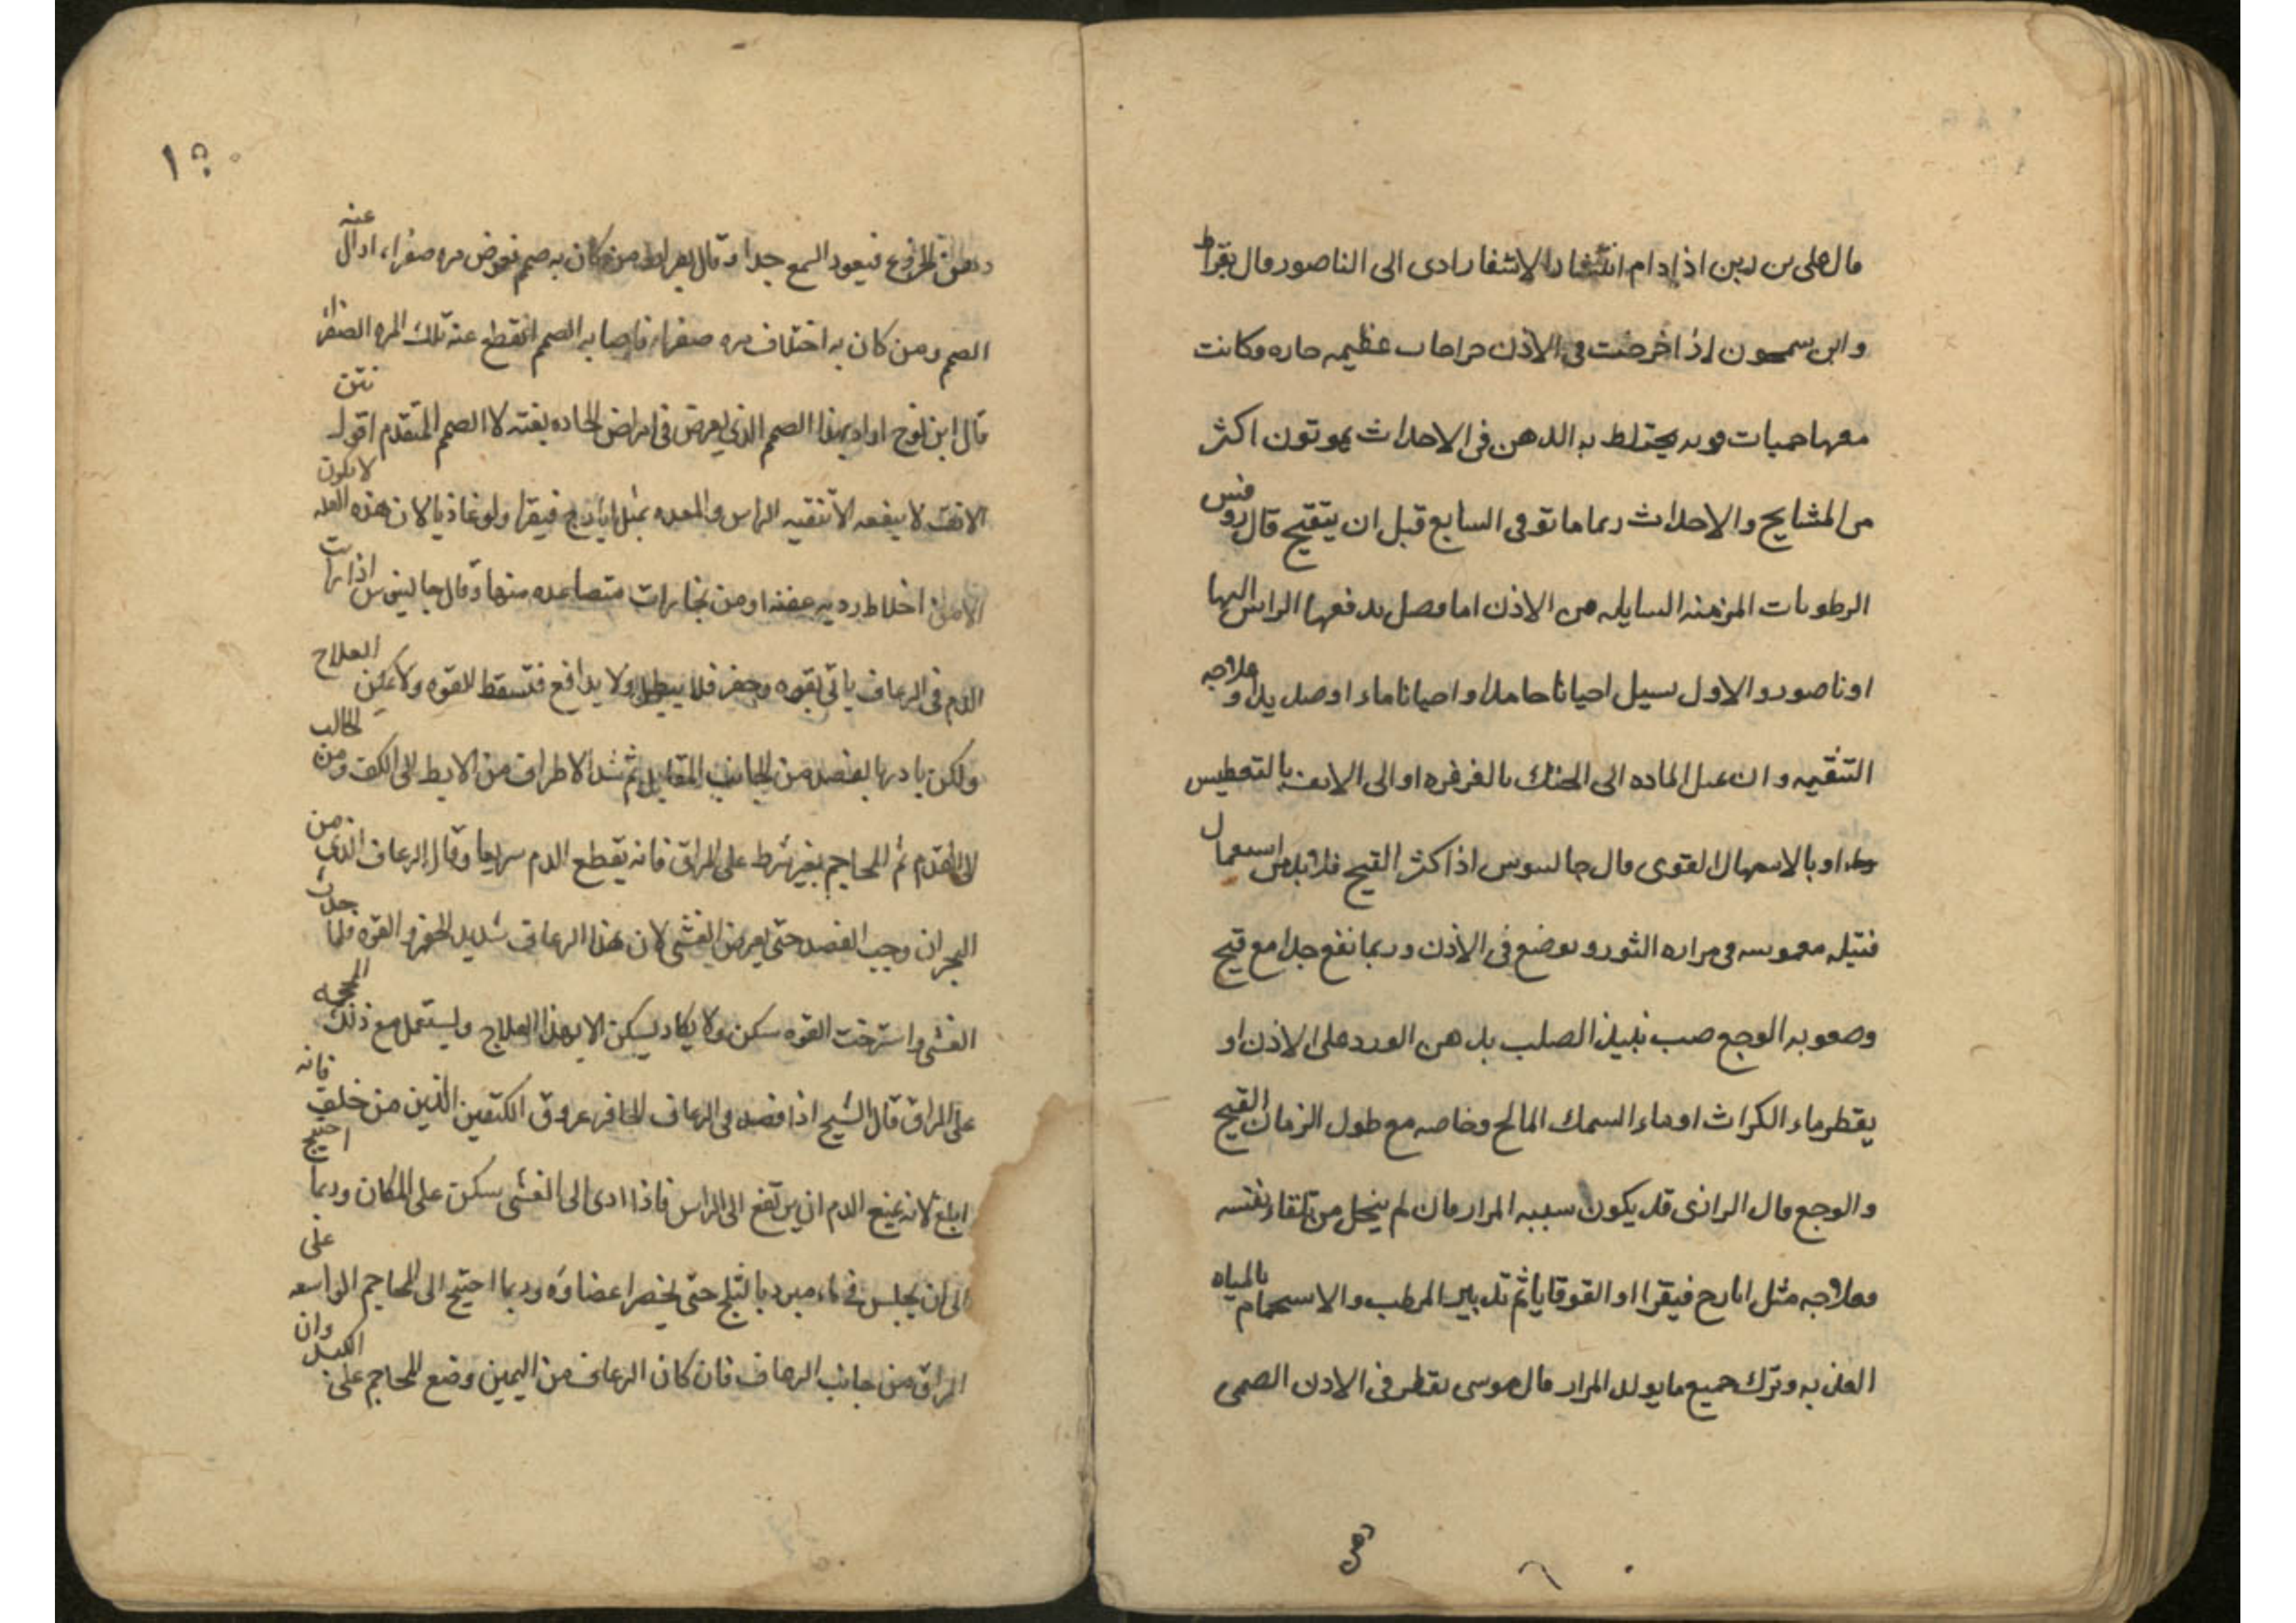 قال على بن ربن اذا دام انتشار الاشفار ادى الى الناصور وقال بقراط
وابن سمحون اذا خرجت فى الاذن جراحات عظيمه حاره وكانت
معها حميات قويه يختلط به الذهن فى الاحداث يموتون اكثر
من المشايخ والاحداث ربما ماتو فى السابع قبل ان يتقيح قال روفس
الرطوبات المزمنه السايله من الاذن اما فصل يدفعها الراس اليها
او ناصور والاول يسيل احيانا حامدا واحيانا ماء او صديدا وعلاجه
التنقيه وان عدل الماده الى الحنك بالغرغره او الى الانف بالتعطيس
او بالاسهال القوى قال جالينوس اذا كثر القيح فلا بد من استعمال
فتيله مغموسه فى مراره الثور وتوضع فى الاذن وربما نفع جدا مع قيح
وصعوبه الوجع صب نبيذ الصلب بدهن الورد على الاذن او
يقطر ماء الكراث او ماء السمك المالح وخاصه مع طول الزمان القيح
والوجع قال الرازى قد يكون سببه المرار فان لم ينحل من تلقاء نفسه
وعلاجه مثل ايارج فيقرا او القوقايا ثم تدبير المرطب والاستحمام بالمياه
العذبه وترك جميع ما يولد المرار قال موسى يقطر فى الاذن الصمى
دهن
١٥٠
دهن الخروع فيعود السمع جدا وقال بقراط من كان به صمم فعرض مره صفراء ازال عنه
الصمم ومن كان به اختلاف مره صفراء فاصابه الصمم انقطع عنه تلك المره الصفراء
قال ابن نوح اراد بهذا الصمم الذى يعرض فى امراض الحاده بغته لا الصمم المتقدم اقول نتن
الانف لا ينفعه الا تنقيه الراس والمعده بمثل ايارج فيقرا ولوغاذيا لان هذه العله لا تكون
الا من اخلاط رديه عفنه او من بخارات متصاعده منها وقال جالينوس اذا رايت
الدم فى الرعاف ياتى بقوه وحفز فلا يبطى ولا يدافع فتسقط القوه ولا يمكن العلاج
ولكن بادر بالفصد من الجانب المقابل ثم شد الاطراف من الابط الى الكف ومن الحالب
الى القدم ثم المحاجم بغير شرط على المراق فانه يقطع الدم سريعا وقال الرعاف الذى من
البحران وجب الفصد حتى يعرض الغشى لان هذا الرعاف شديد الحفز والقوه فلما حدث
الغشى واسترخت القوه سكن ولا يكاد يسكن الا بهذا العلاج وليستعمل مع ذلك المحجمه
على المراق قال الشيخ اذا فصد فى الرعاف الحافز عروق الكتفين الذين من خلف فانه
ابلغ لانه يمنع الدم ان يرتفع الى الراس فاذا ادى الى الغشى سكن على المكان وربما احتيج
الى ان يجلس فى ماء مبرد بالثلج حتى يخصر اعضاوه وربما احتيج الى المحاجم الواسعه على
المراق من جانب الرعاف فان كان الرعاف من اليمين وضع المحاجم على الكبد وان